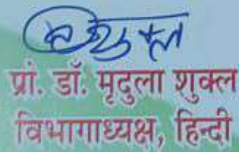 शुक्ल
प्रो. डॉ. मृदुला शुक्ल
विभागाध्यक्ष, हिन्दी